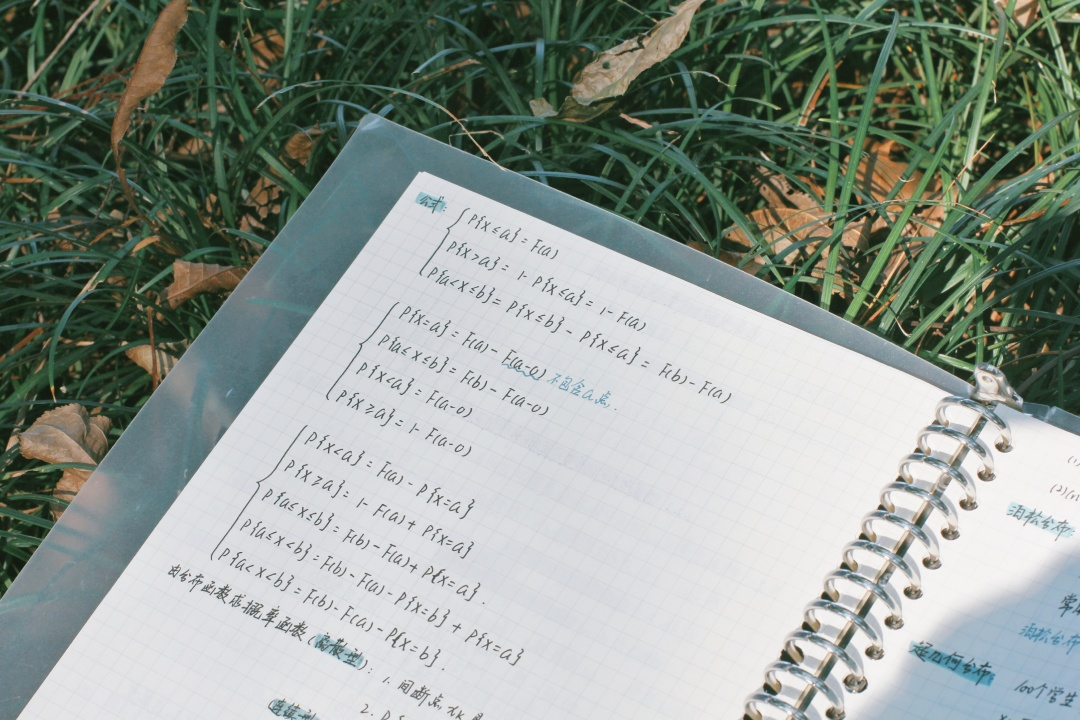 公式:
P{X≤a} = F(a)
P{X>a} = 1- P{X≤a} = 1- F(a)
P{a<X≤b} = P{X≤b} - P{X≤a} = F(b)-F(a)
P{X=a} = F(a) - F(a-0) 不包含a点.
P{a≤X≤b} = F(b) - F(a-0)
P{X<a} = F(a-0)
P{X≥a} = 1- F(a-0)
P{X<a} = F(a) - P{X=a}
P{X≥a} = 1- F(a) + P{X=a}
P{a≤X≤b} = F(b)-F(a)+P{X=a}.
P{a≤X<b} = F(b)-F(a)-P{X=b} + P{X=a}
P{a<X<b} = F(b)-F(a)-P{X=b}.
由分布函数求概率函数 (离散型): 1. 间断点
2. P{
(连续型
(1)
(2)
泊松分布:
泊松分布
超几何分布:
100个学生